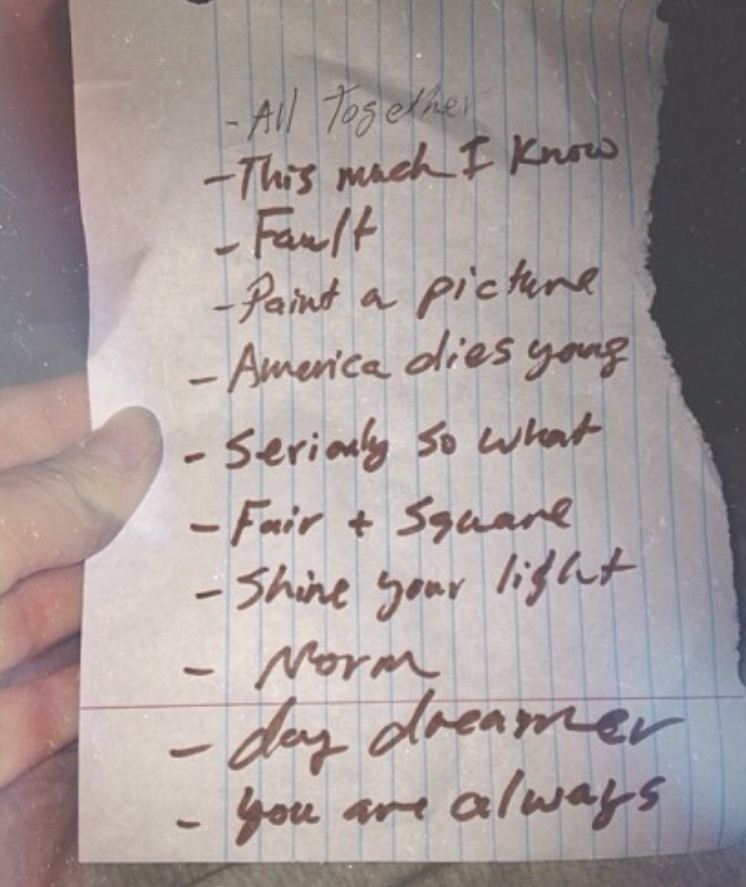 - All Together
- This much I know
- Fault
- Paint a picture
- America dies young
- Seriouly so what
- Fair + Square
- Shine your light
- Norm
- day dreamer
- you are always